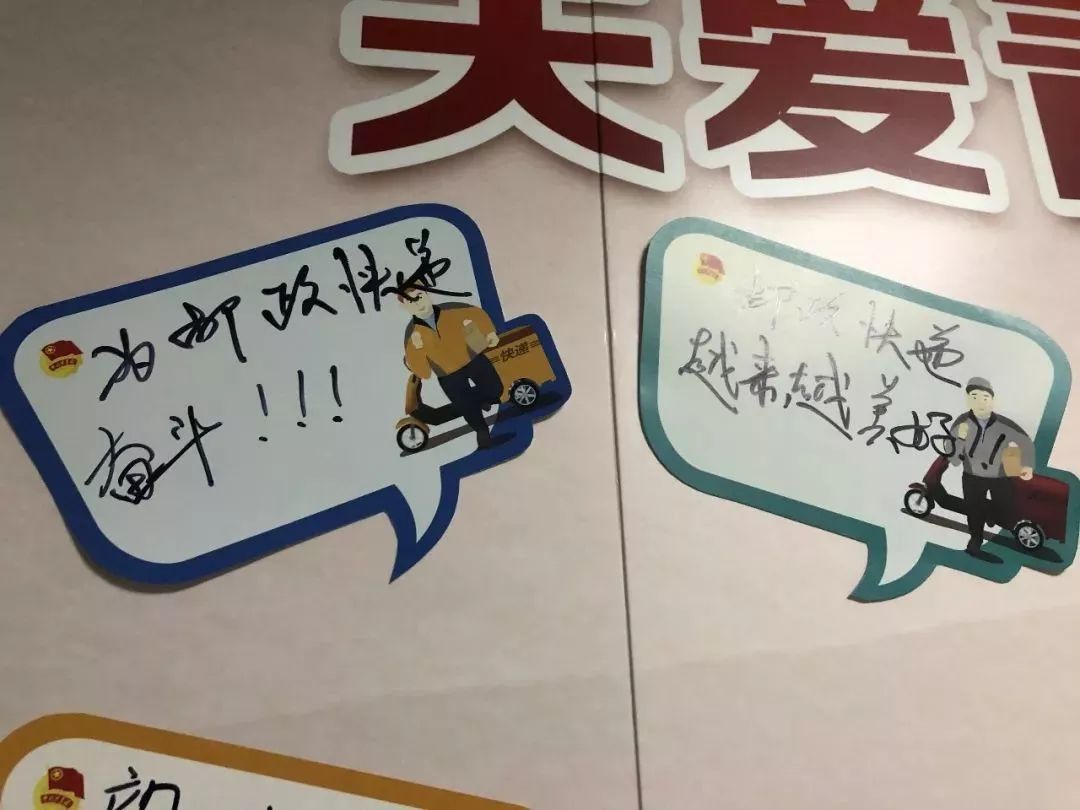 关爱
为邮政快递
奋斗!!!
快递
邮政快递
越来越美好!!